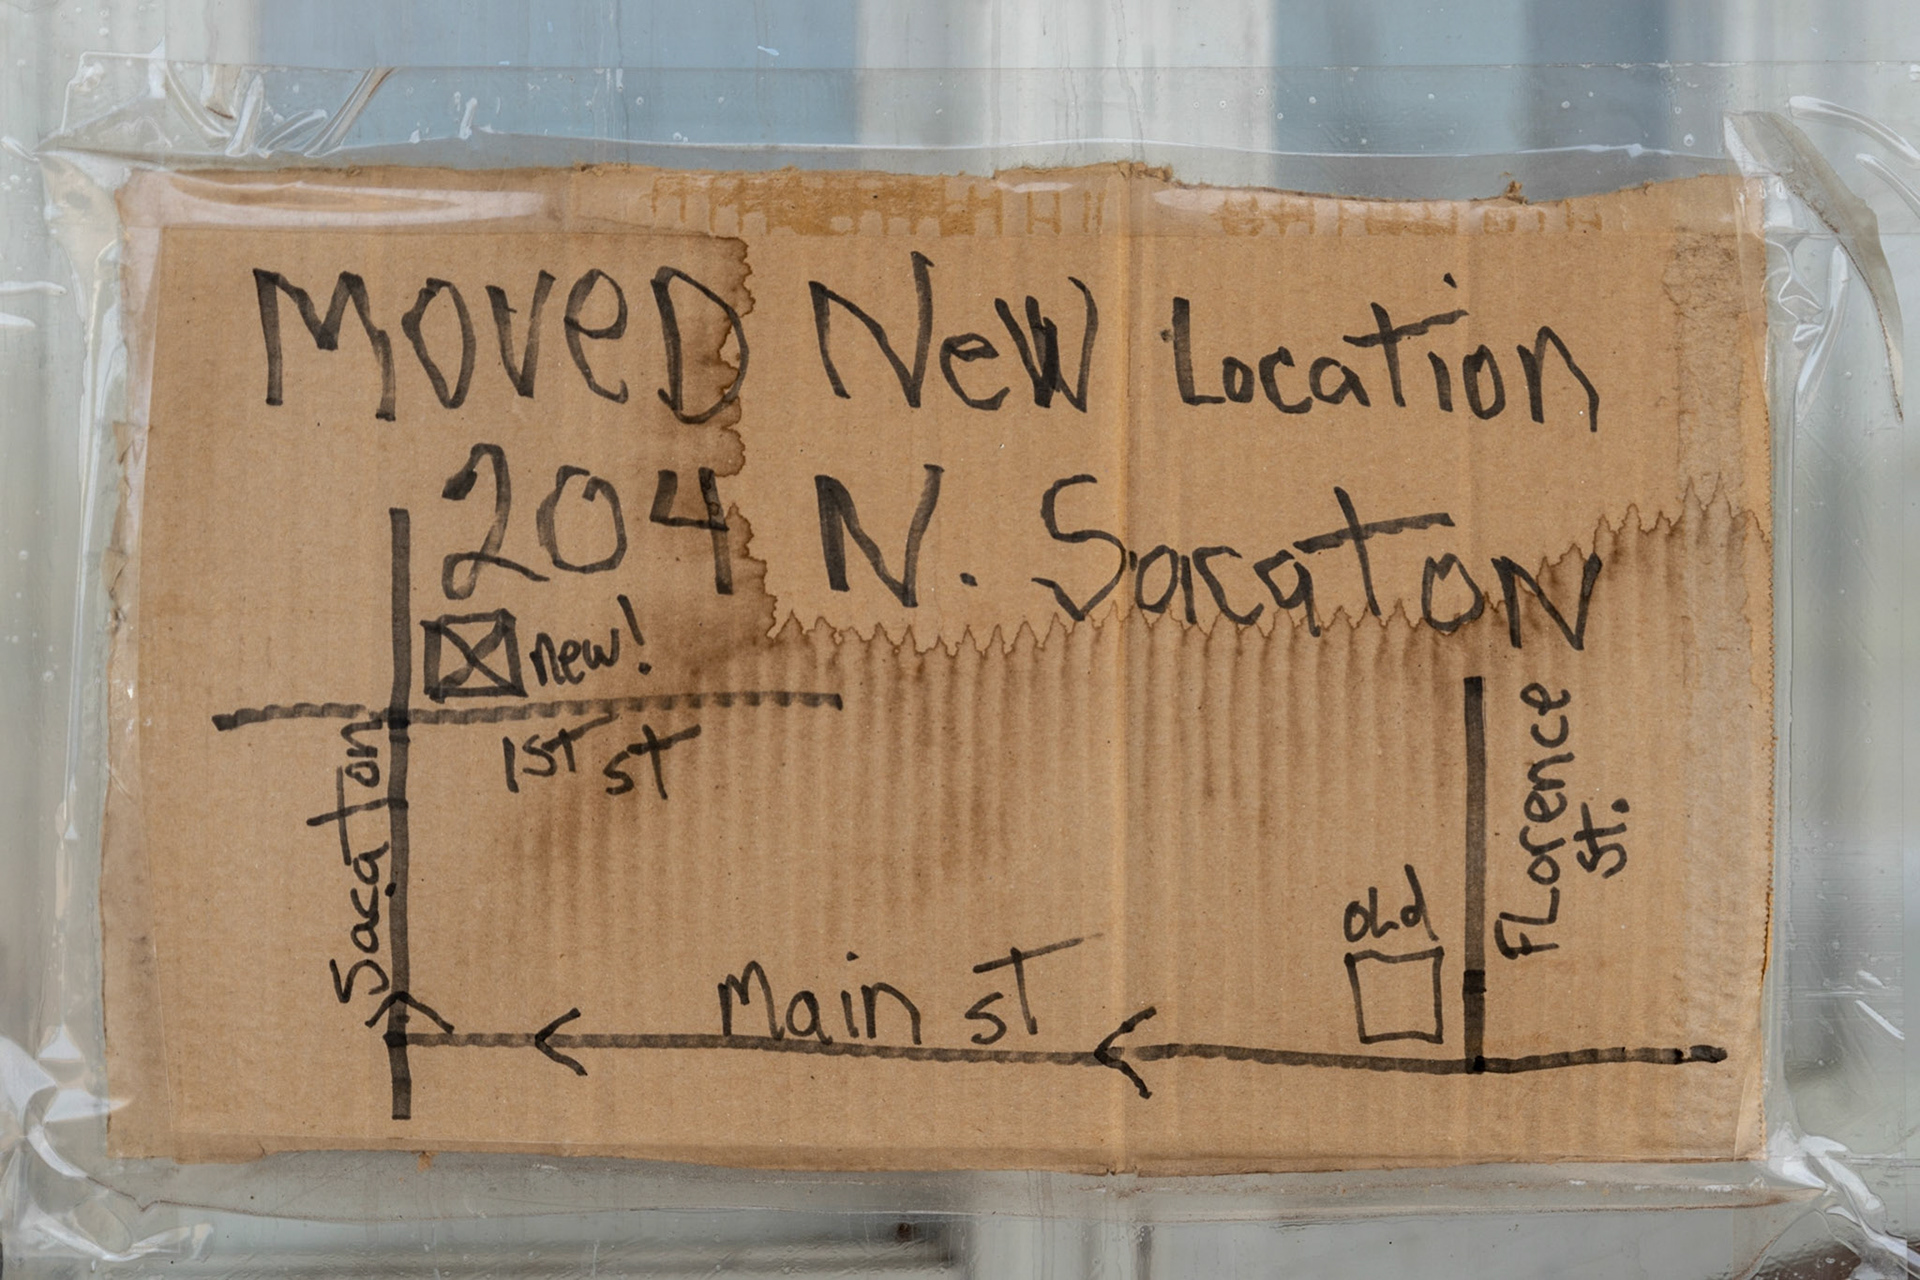 MOVeD New Location
204 N. SacatoN
new!
1st st
Sacaton
FLorence
St.
oLd
Main st